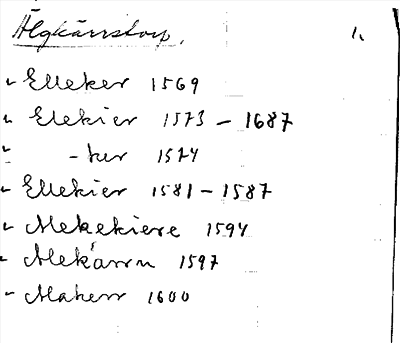 Älgkärrstorp. 1.
" Elleker 1569
" Elekier 1573 - 1687
" -ker 1574
" Ellekier 1581 - 1587
" Alekekiere 1594
" Alekärrn 1597
" Alakerr 1600